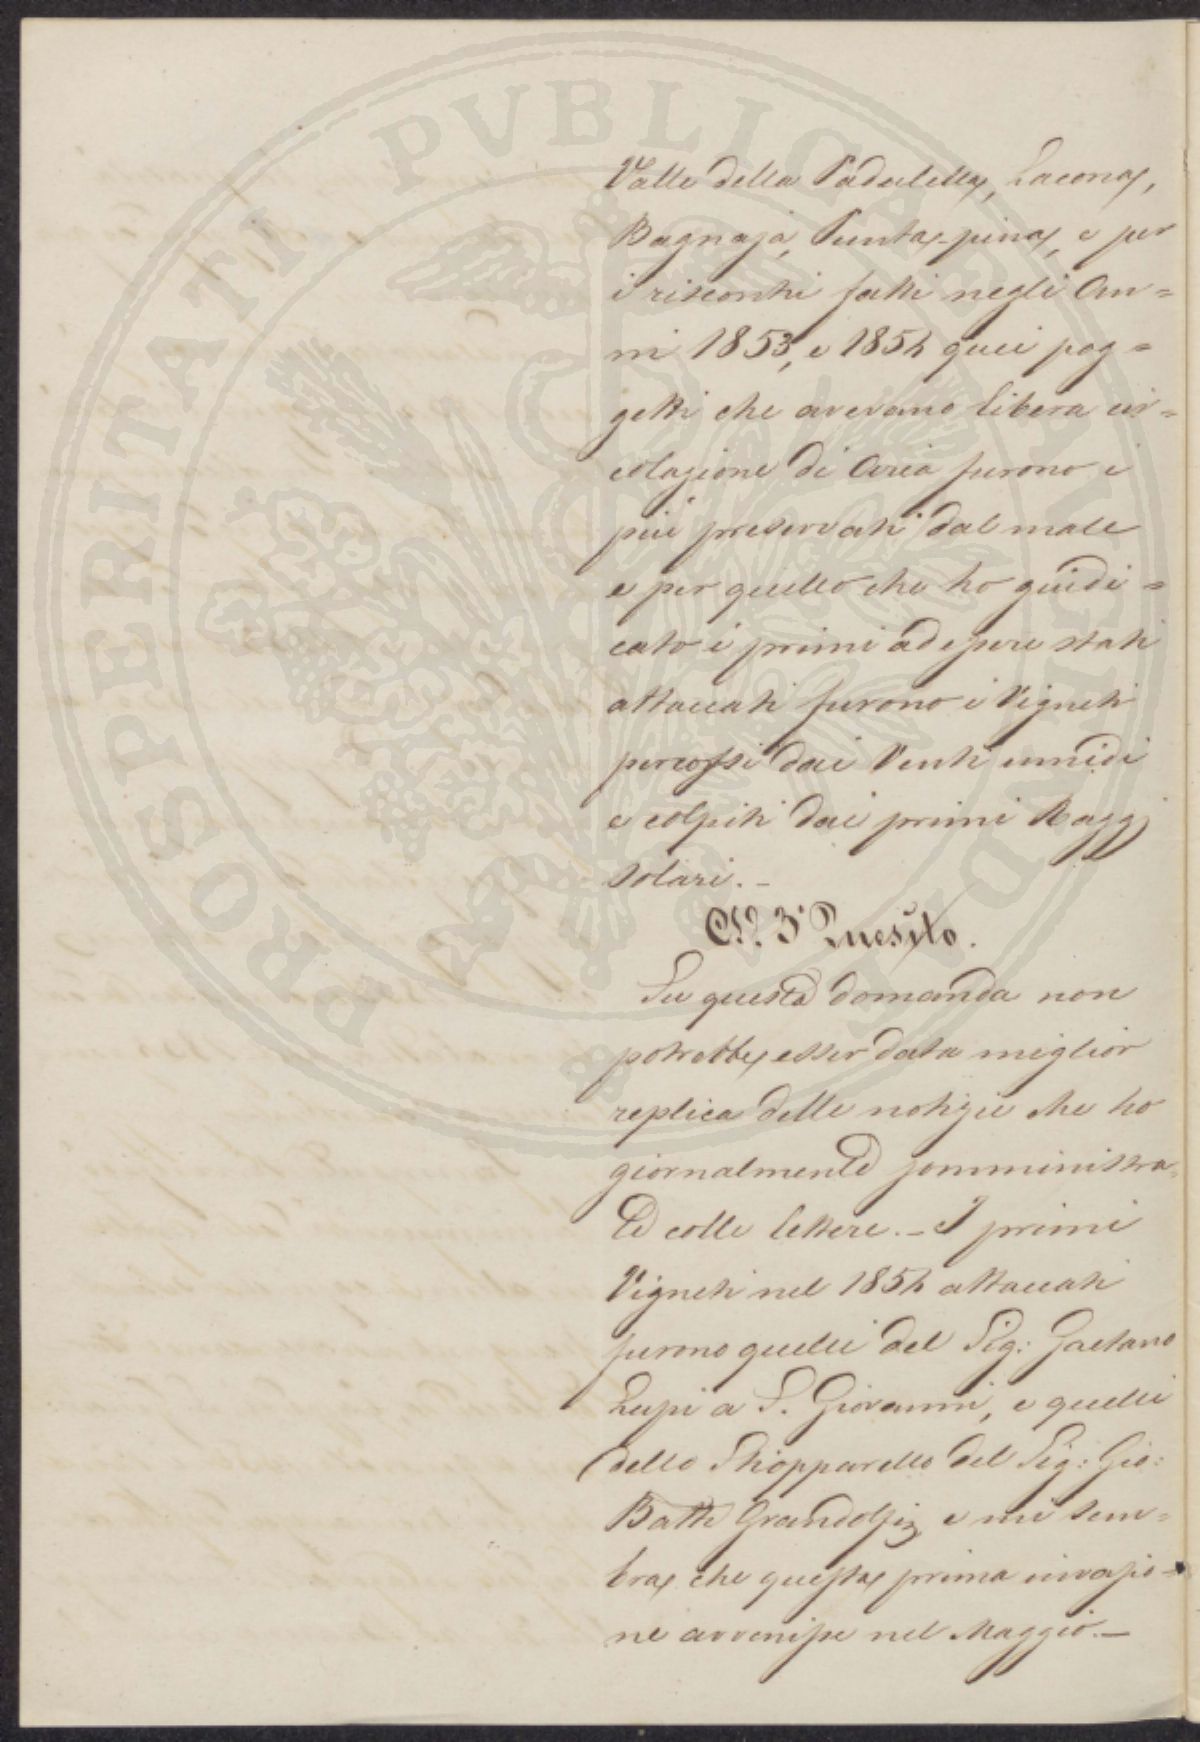 Valle della Padulella, Lacona,
Bagnaja, Punta-pina, e per
i riscontri fatti negli An=
ni 1853, e 1854 quei pog=
getti che avevano libera cir=
colazione di Aria furono i
più preservati dal male
e per quello che ho giudi=
cato i primi ad essere stati
attaccati furono i Vigneti
percossi dai Venti umidi
e colpiti dai primi Raggj
solari.-
Al 3° Quesito.
Su questa domanda non
potrebbe esser data miglior
replica delle notizie che ho
giornalmente somministra=
te colle lettere.- I primi
Vigneti nel 1854 attaccati
furono quelli del Sig: Gaetano
Lupi a S. Giovanni, e quelli
dello Schiopparello del Sig: Gio:
Batta Grandolfi, e mi sem=
bra che questa prima invasio=
ne avvenisse nel Maggio.-
PROSPERITATI PVBLICAE AVGENDAE